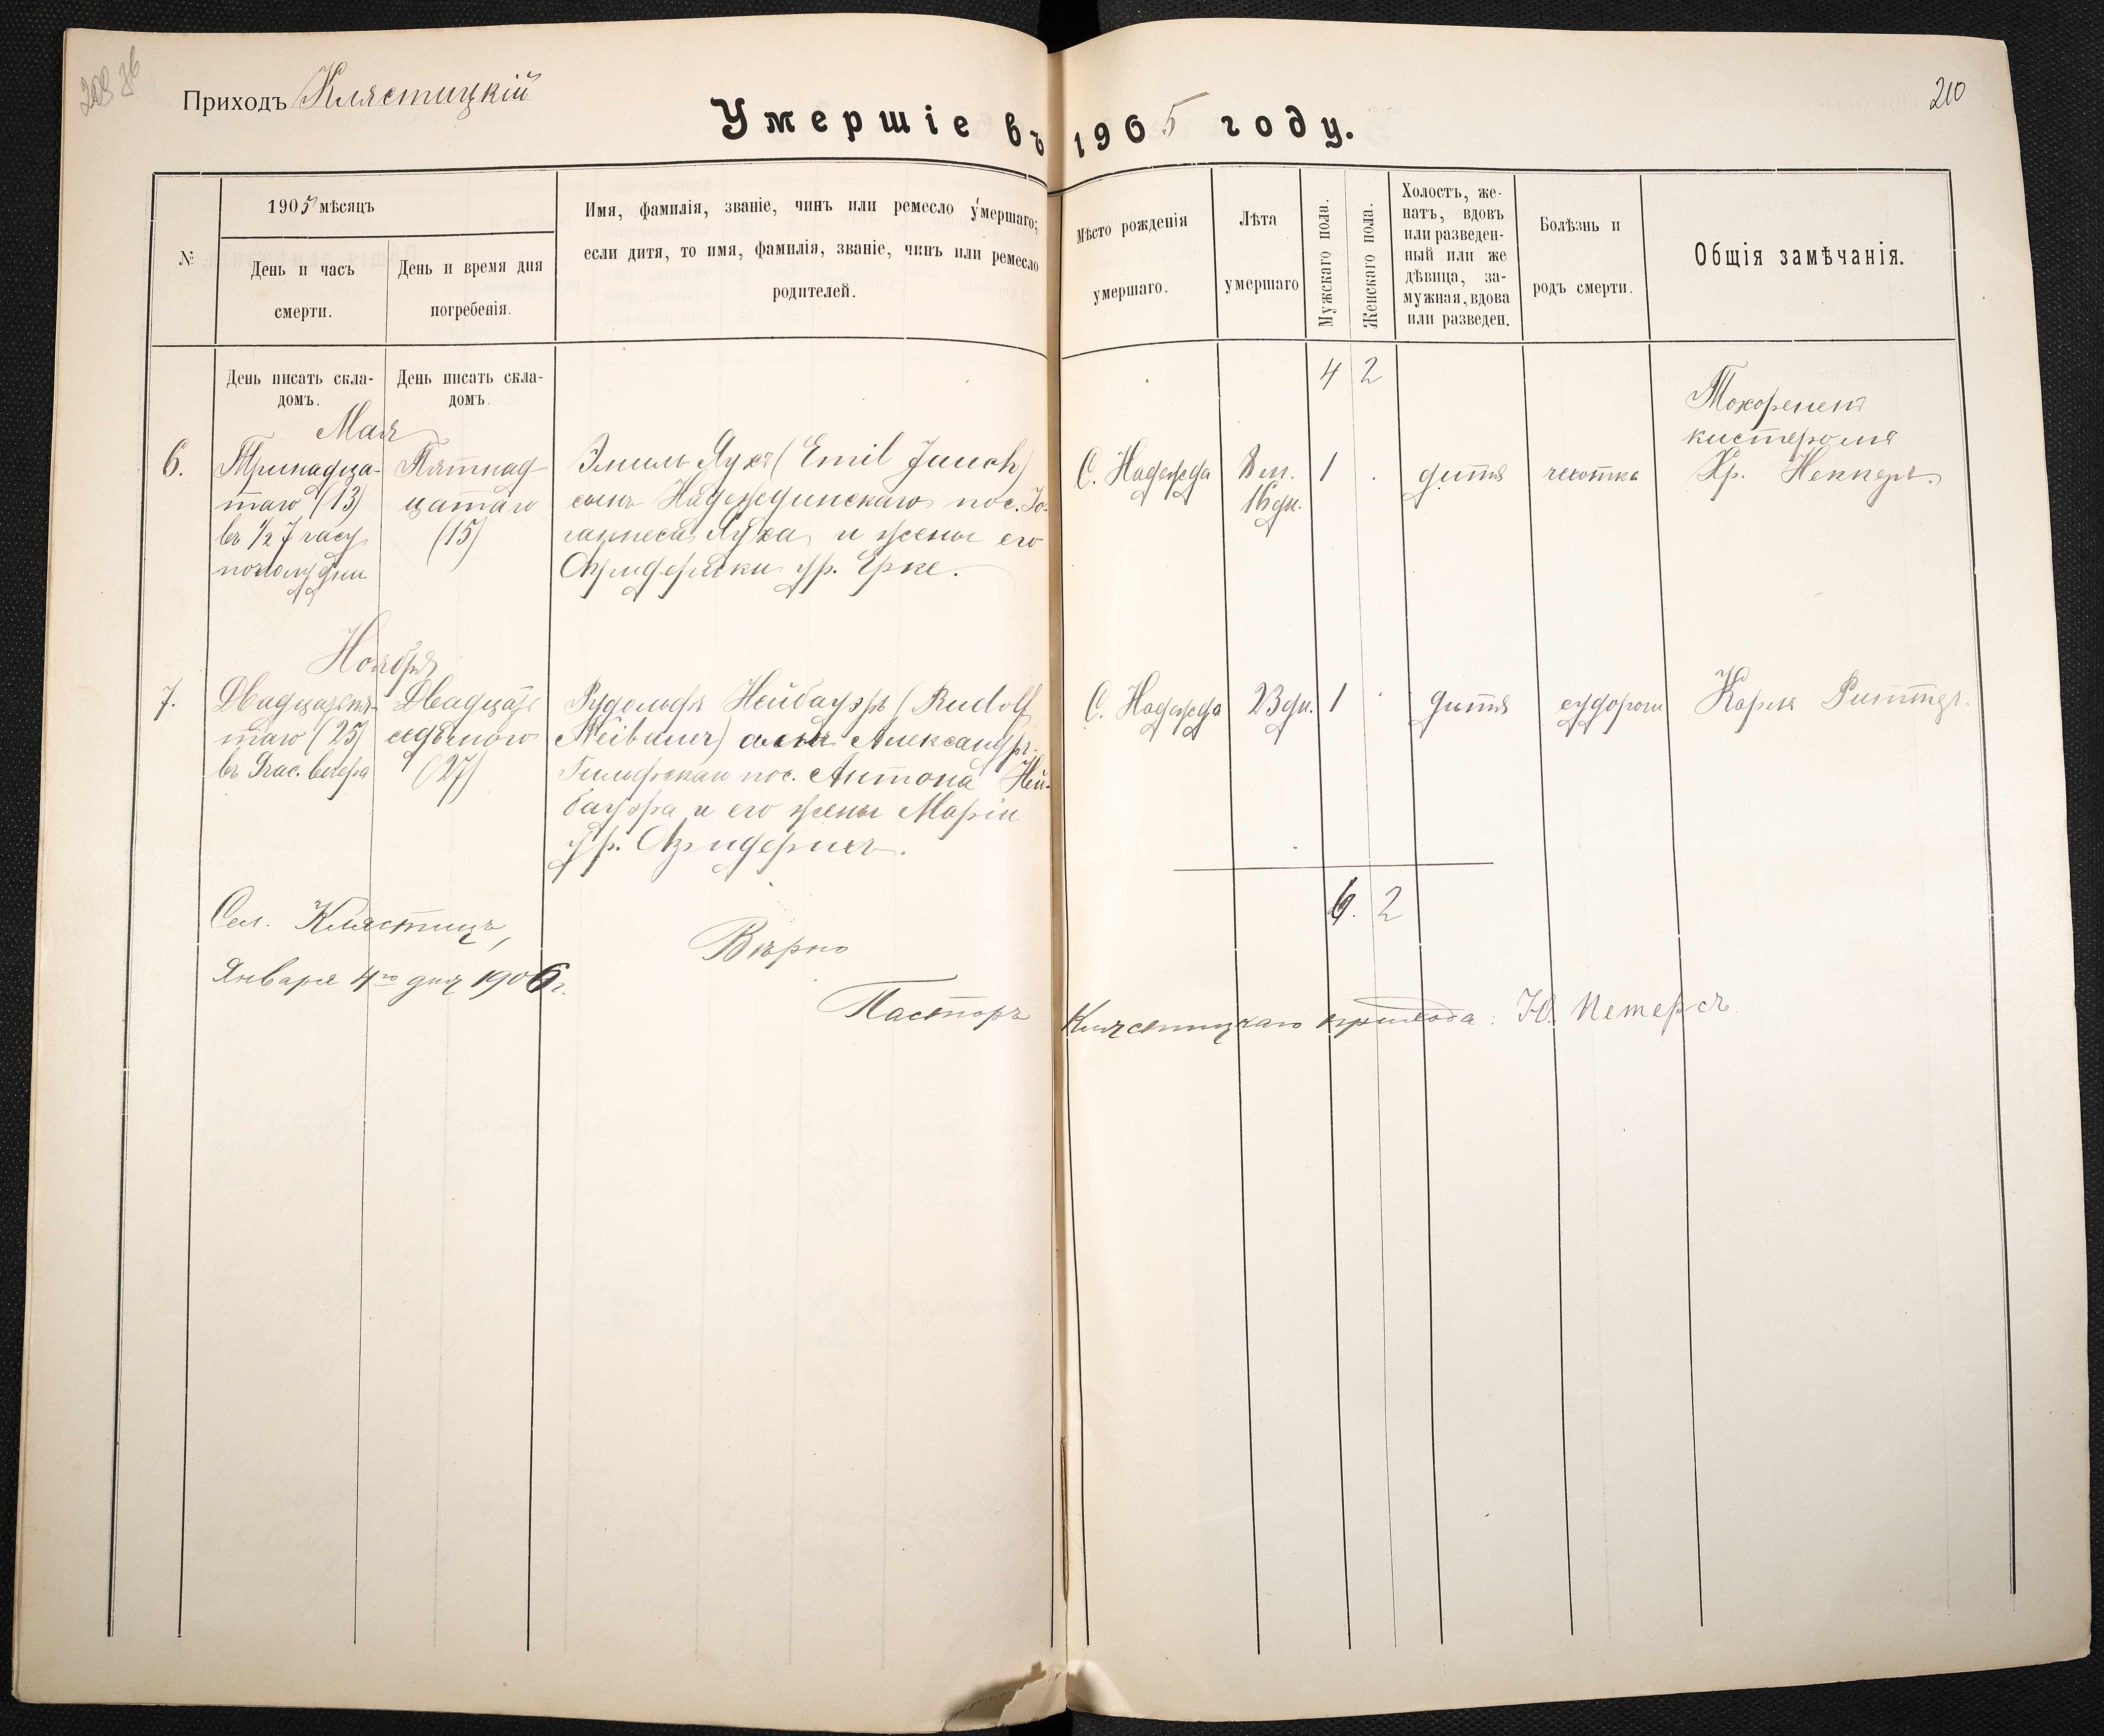 Приходъ Клястицкій
210
Умершіе въ 1905 году.
№
1905 мѣсяцъ
День и часъ
смерти.
День и время дня
погребенія.
Имя, фамилія, званіе, чинъ или ремесло умершаго;
если дитя, то имя, фамилія, званіе, чинъ или ремесло
родителей.
Мѣсто рожденія
умершаго.
Лѣта
умершаго
Мужскаго пола.
Женскаго пола.
Холостъ, же-
натъ, вдовъ
или разведен-
ный или же
дѣвица, за-
мужная, вдова
или разведен.
Болѣзнь и
родъ смерти.
Общія замѣчанія.
День писать скла-
домъ.
День писать скла-
домъ.
4 2
Мая
6.
Тринадца-
таго (13)
въ 1/2 7 часу
пополудни
Пятнад
цатаго
(15)
Эмиль Яухъ (Emil Jauch)
сынъ Надеждинскаго пос. Іо-
ганнеса Яуха и жены его
Фридерики ур. Ерке.
С. Надежда
8 м.
16 дн.
1
.
дитя
чахотка
Похороненъ
кистеромъ
Хр. Неккеръ.
Ноября
7.
Двадцатьпя-
таго (25)
въ 9 час. вечера
Двадцать
седьмого
(27)
Рудольфъ Нейбауэръ (Rudolf
Neibauer) сынъ Александр-
Гильфскаго пос. Антона Ней-
бауэра и его жены Маріи
ур. Фридерихъ.
С. Надежда
23 дн.
1
.
дитя
судороги
Карлъ Риттер.
6. 2
Сел. Клястицъ,
Января 4го дня 1906 г.
Вѣрно
Пасторъ Клястицкаго прихода: Ю. Петерсъ.